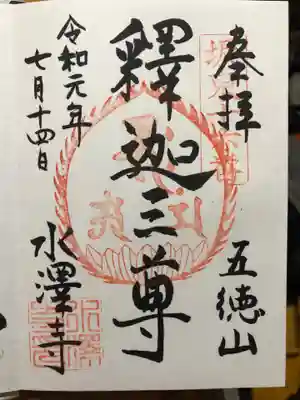 奉拝
五徳山
釋迦三尊
水澤寺
令和元年
七月十四日